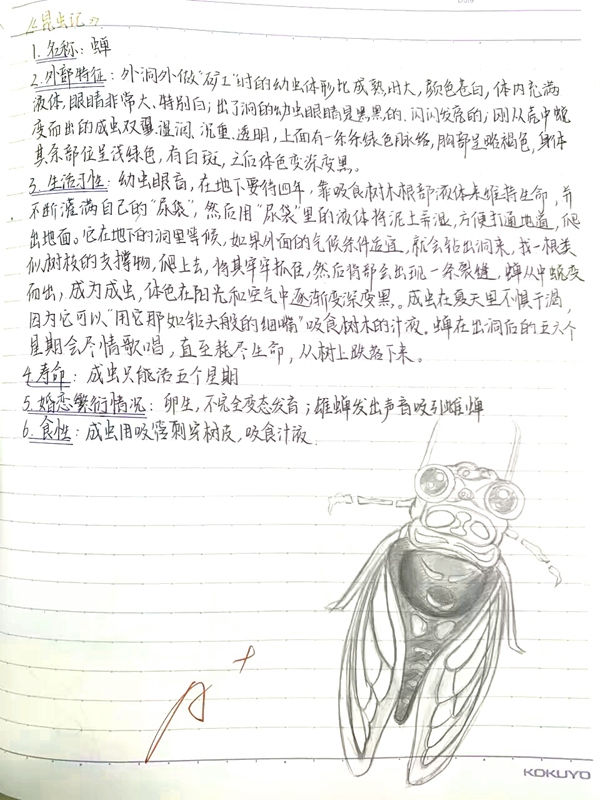 《昆虫记》
1. 名称：蝉
2. 外部特征：外洞外做“矿工”时的幼虫体形比成熟时大，颜色苍白，体内充满
液体，眼睛非常大、特别白；出了洞的幼虫眼睛是黑黑的、闪闪发亮的；刚从壳中蜕
变而出的成虫双翼湿润、沉重、透明，上面有一条条绿色脉络，胸部呈略褐色，身体
其余部位呈浅绿色，有白斑，之后体色变深变黑。
3. 生活习性：幼虫眼盲，在地下要待四年，靠吸食树木根部液体来维持生命，并
不断灌满自己的“尿袋”，然后用“尿袋”里的液体将泥土弄湿，方便打通地道，爬
出地面。它在地下的洞里等候，如果外面的气候条件适宜，就会钻出洞来，找一根类
似树枝的支撑物，爬上去，将其牢牢抓住，然后背部会出现一条裂缝，蝉从中蜕变
而出，成为成虫，体色在阳光和空气中逐渐变深变黑。成虫在夏天里不惧干渴，
因为它可以“用它那如钻头般的细嘴”吸食树木的汁液。蝉在出洞后的五六个
星期会尽情歌唱，直至耗尽生命，从树上跌落下来。
4. 寿命：成虫只能活五个星期
5. 婚恋繁衍情况：卵生，不完全变态发育；雄蝉发出声音吸引雌蝉
6. 食性：成虫用吸管刺穿树皮，吸食汁液.
A+
KOKUYO